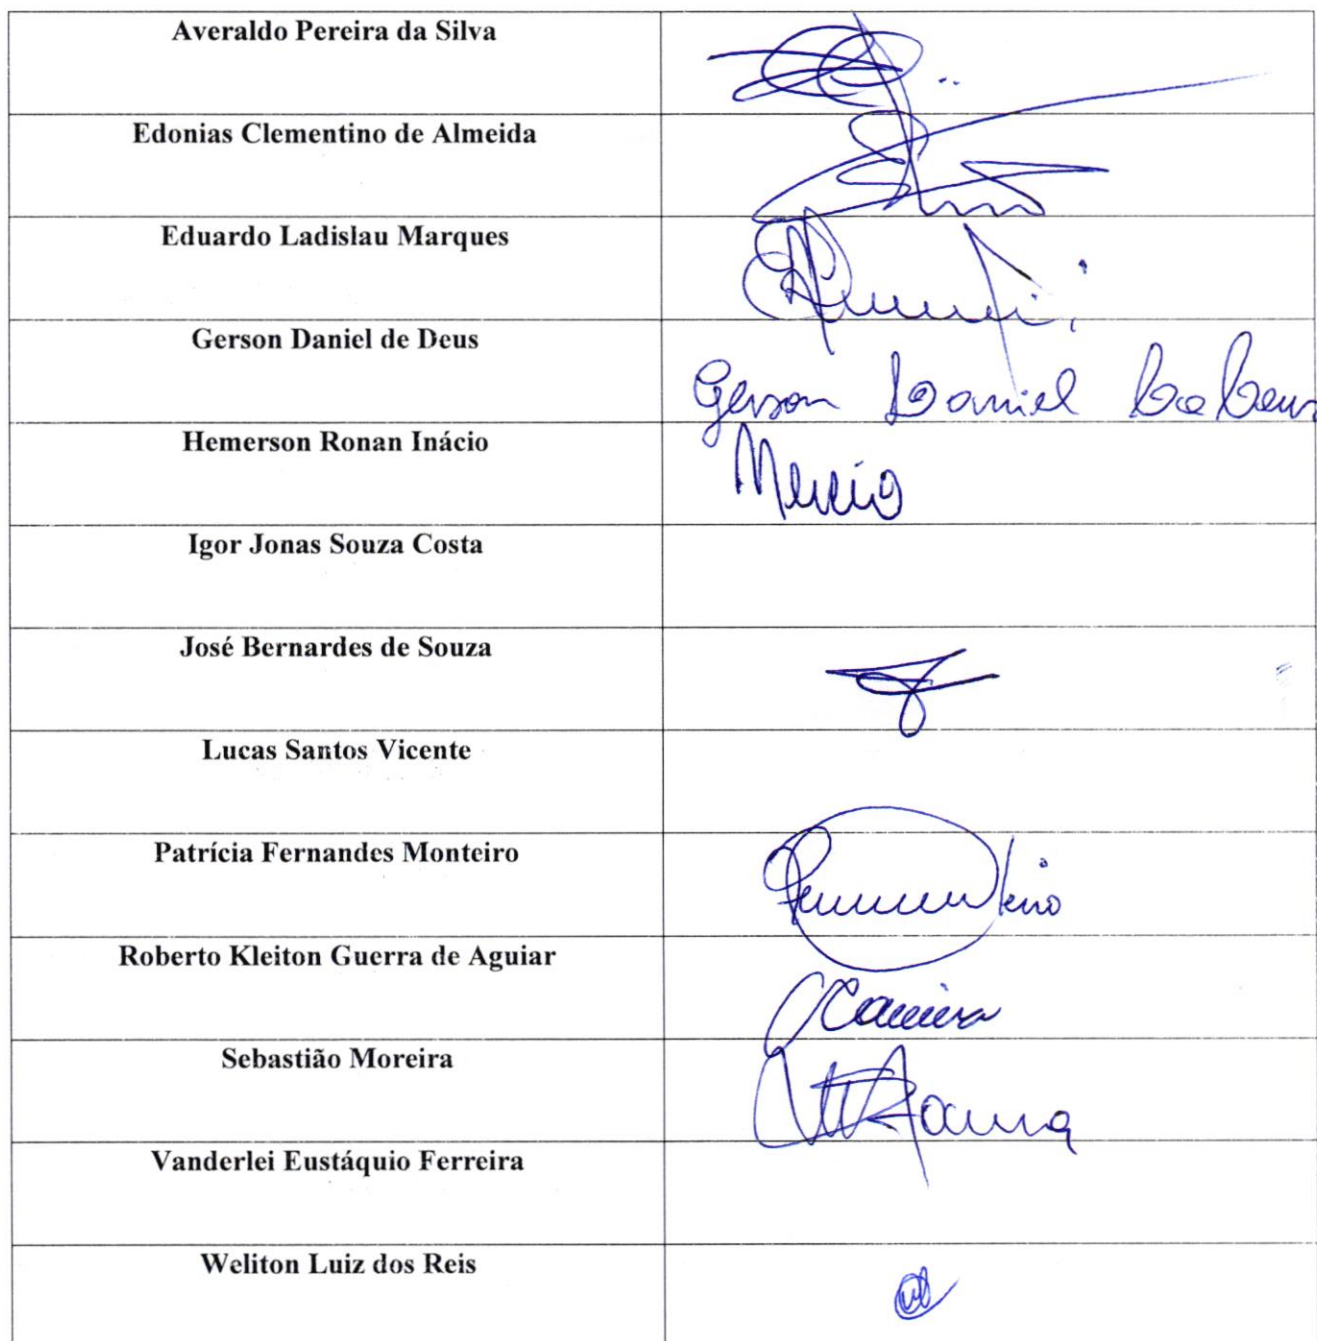 Averaldo Pereira da Silva
Edonias Clementino de Almeida
Eduardo Ladislau Marques
Gerson Daniel de Deus
Gerson Daniel de Deus
Hemerson Ronan Inácio
Igor Jonas Souza Costa
José Bernardes de Souza
Lucas Santos Vicente
Patrícia Fernandes Monteiro
Roberto Kleiton Guerra de Aguiar
Sebastião Moreira
Vanderlei Eustáquio Ferreira
Weliton Luiz dos Reis